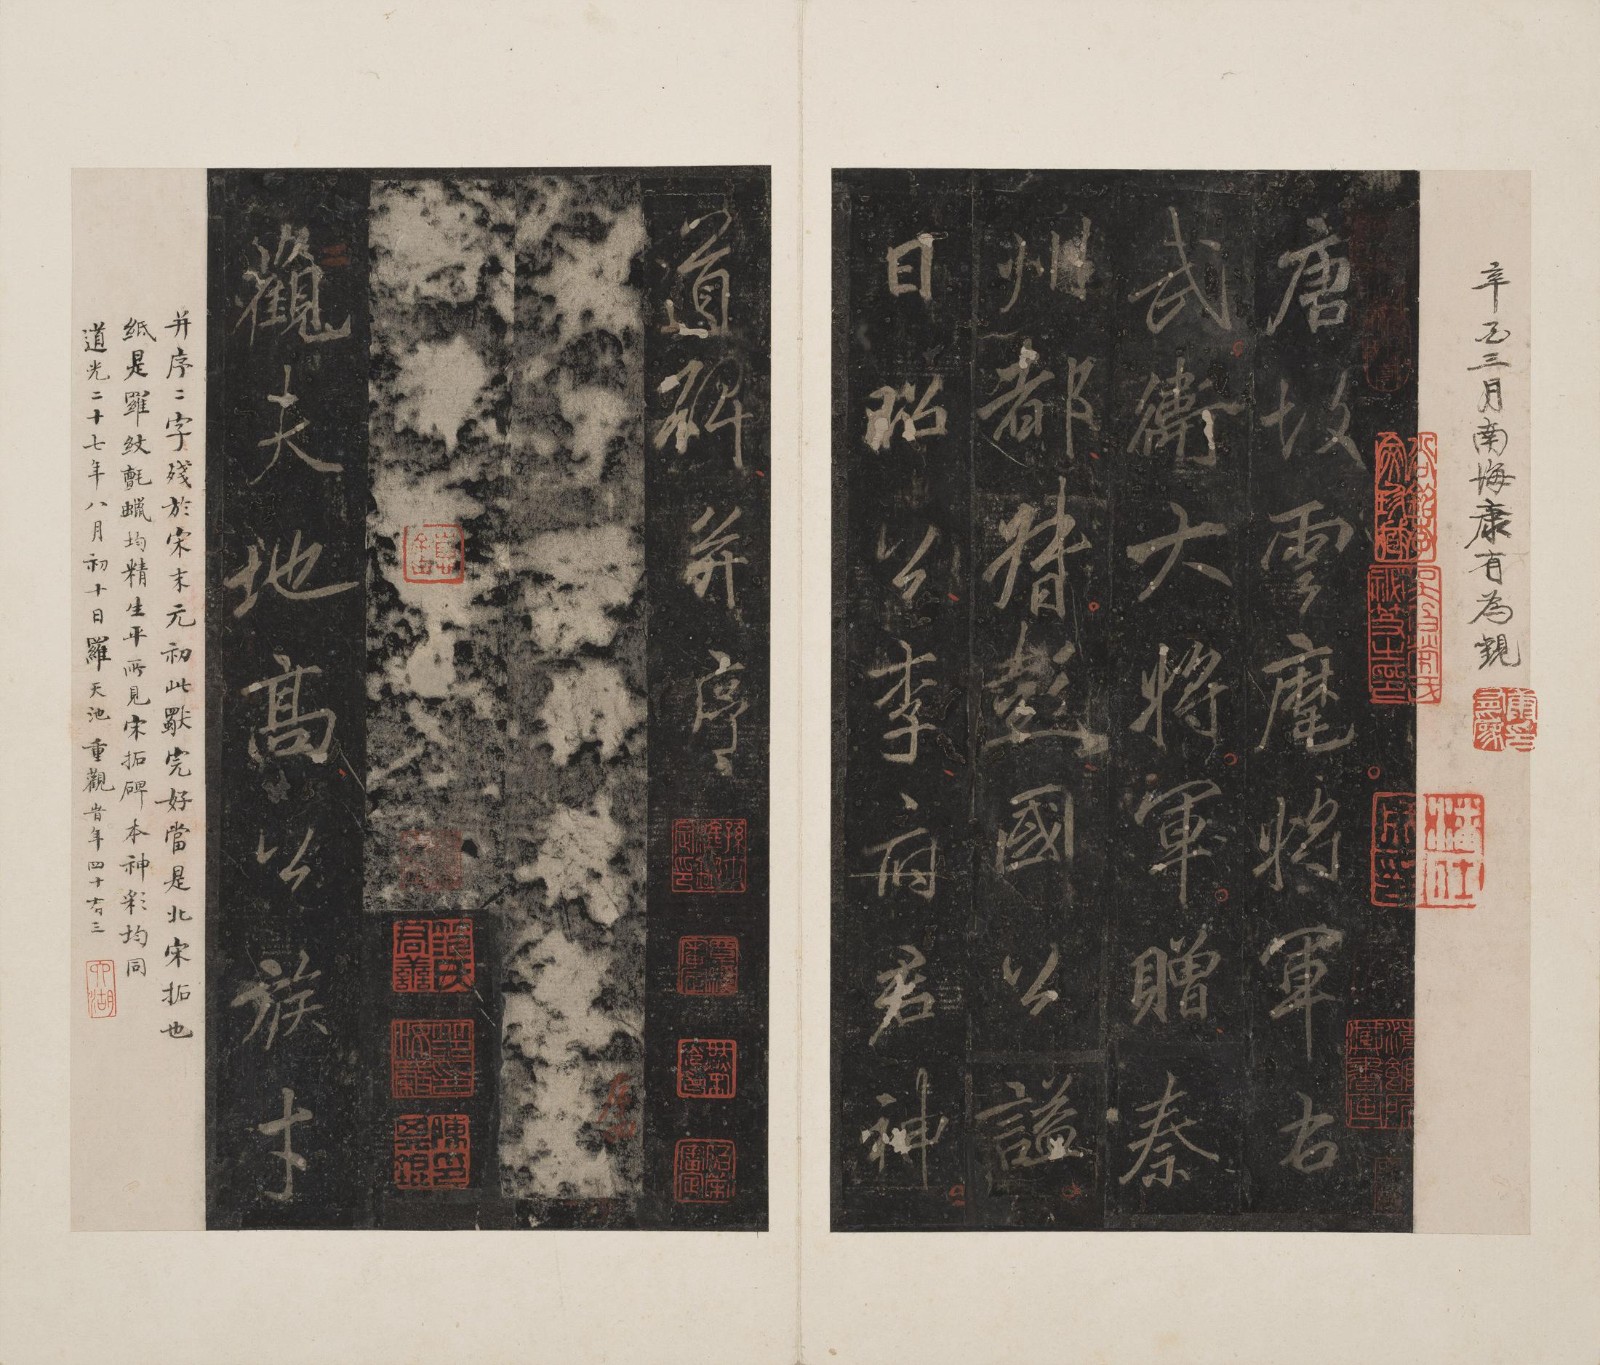 辛巳三月南海康有為觀
唐故雲麾將軍右
武衛大將軍贈秦
州都督彭國公謚
曰昭公李府君神
道碑并序
觀夫地高公族才
并序二字殘於宋末元初此獨完好當是北宋拓也
紙是羅紋氈蠟均精生平所見宋拓碑本神彩均同
道光二十七年八月初十日羅天池重觀皆年四十有三